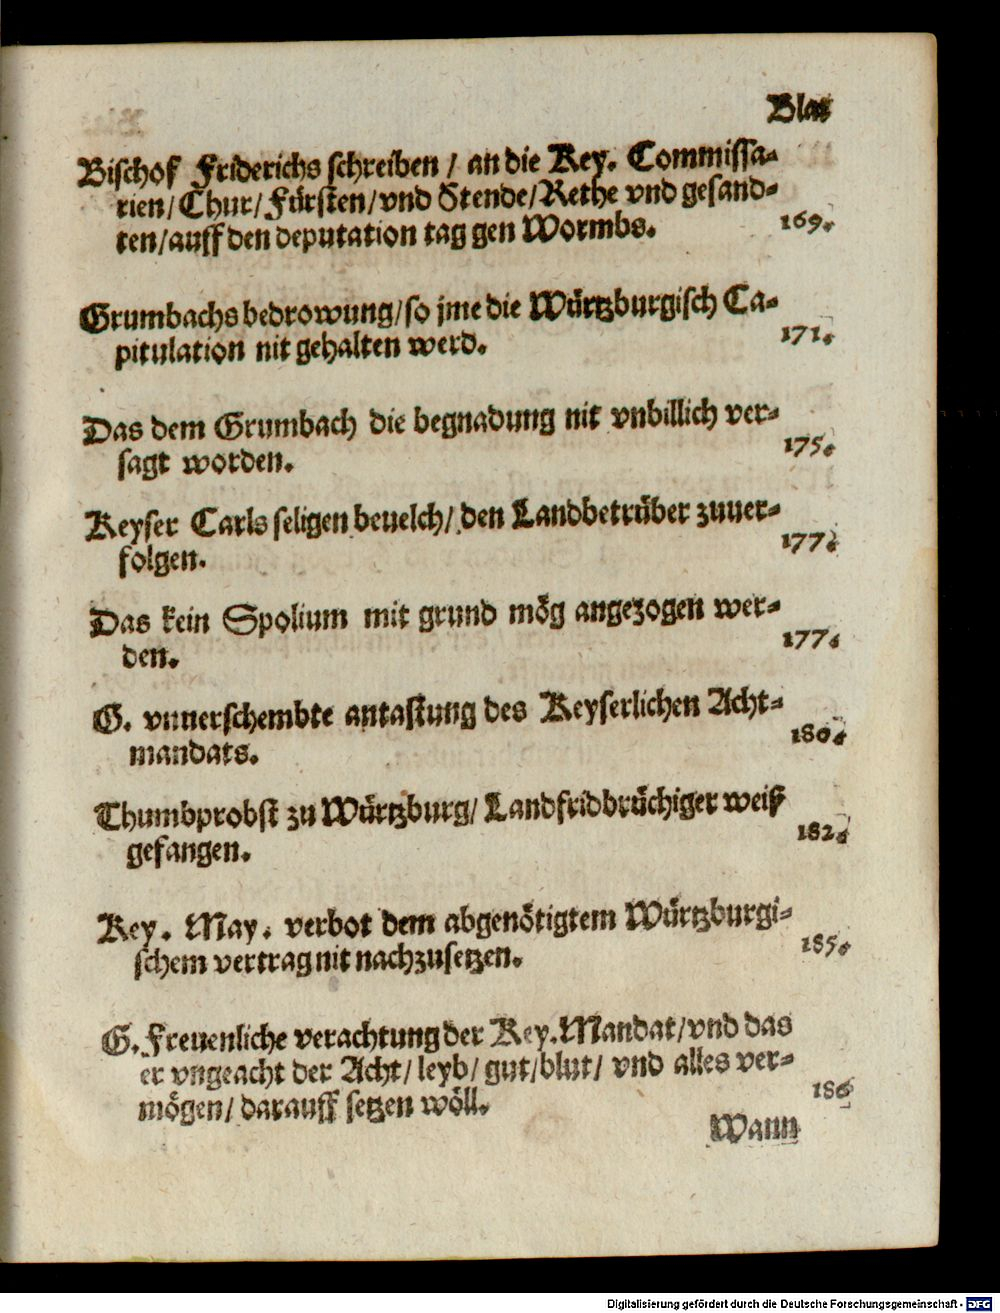 Blat
Bischof Friderichs schreiben / an die Key. Commissa-
rien / Chur / Fürsten / vnd Stende / Rethe vnd gesand-
ten / auff den deputation tag gen Wormbs. 169.
Grumbachs bedrowung / so jme die Würtzburgisch Ca-
pitulation nit gehalten werd. 171.
Das dem Grumbach die begnadung nit vnbillich ver-
sagt worden. 175.
Keyser Carls seligen beuelch / den Landbetrüber zuuer-
folgen. 177.
Das kein Spolium mit grund mög angezogen wer-
den. 177.
G. vnuerschembte antastung des Keyserlichen Acht-
mandats. 180.
Thumbprobst zu Würtzburg / Landfridbrüchiger weiß
gefangen. 182.
Key. May. verbot dem abgenötigtem Würtzburgi-
schem vertrag nit nachzusetzen. 185.
G. Freuenliche verachtung der Key. Mandat / vnd das
er vngeacht der Acht / leyb / gut / blut / vnd alles ver-
mögen / darauff setzen wöll. 186
Wann
Digitalisierung gefördert durch die Deutsche Forschungsgemeinschaft - DFG